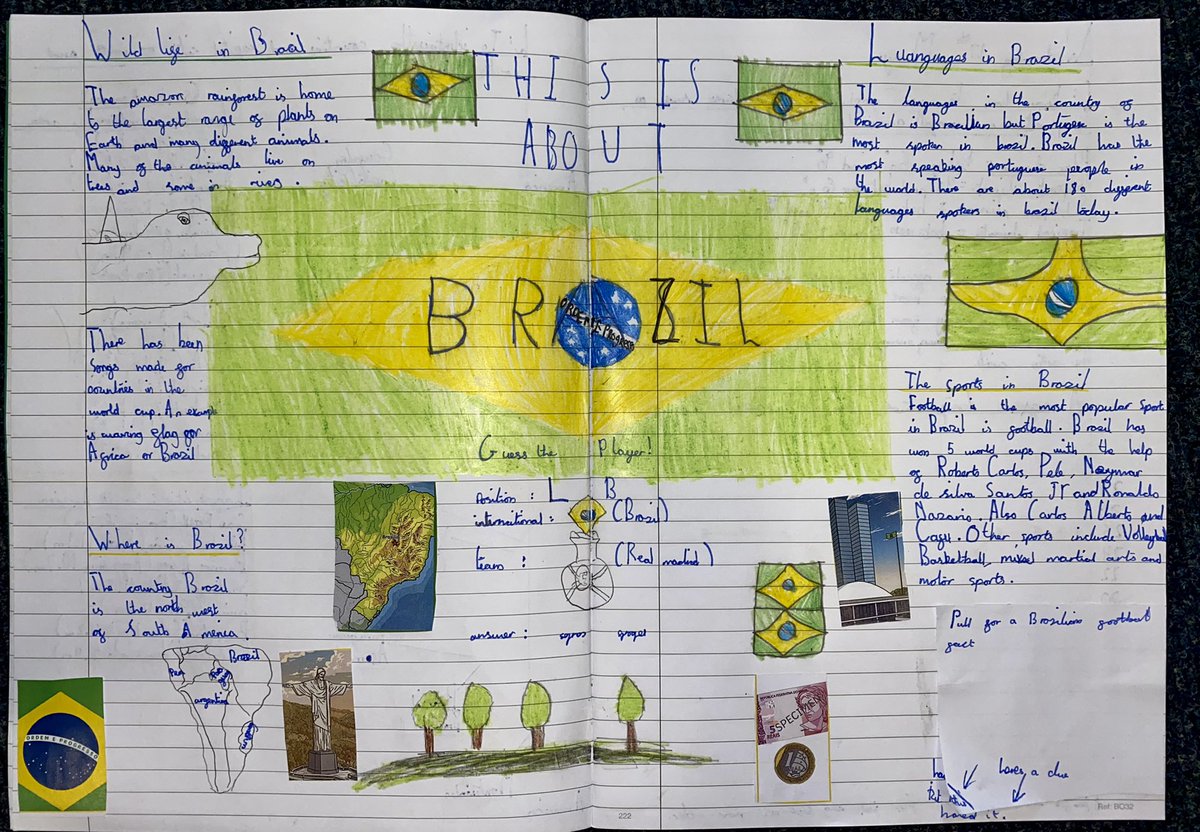 Wild lige in Bracil
The amazon rainforest is home
to the largest range of plants on
Earth and many different animals.
Many of the animals live on
trees and some in rives.
THIS IS
ABOUT
BRAZIL
ORDEM E PROGRESSO
Luanguages in Brazil
The languages in the country of
Brazil is Brazilian but Portugese is the
most spoken in brazil. Brazil has the
most speaking portuguese people in
the world. There are about 180 different
languages spoken in brazil today.
There has been
songs made for
countries in the
world cup. An example
is waving flag for
Africa or Brazil
Guess the Player!
position : L B
international : (Brazil)
team : (Real madrid)
answer :
The sports in Brazil
Football is the most popular sport
in Brazil is football. Brazil has
won 5 world cups with the help
of Roberto Carlos, Pele, Neymar
de silva Santos JT and Ronaldo
Nazario. Also Carlos Alberto and
Cagu. Other sports include Volleyball
Basketball, mixed martial arts and
motor sports.
Where is Brazil?
The country Brazil
is the north west
of South America.
Brazil
Peru
argentina
ORDEM E PROGRESSO
REPÚBLICA FEDERATIVA DO BRASIL
SPECIMEN
5
REAIS
1
Pull for a Brazilian football
fact
a clue
it.
222
Ref: BC32